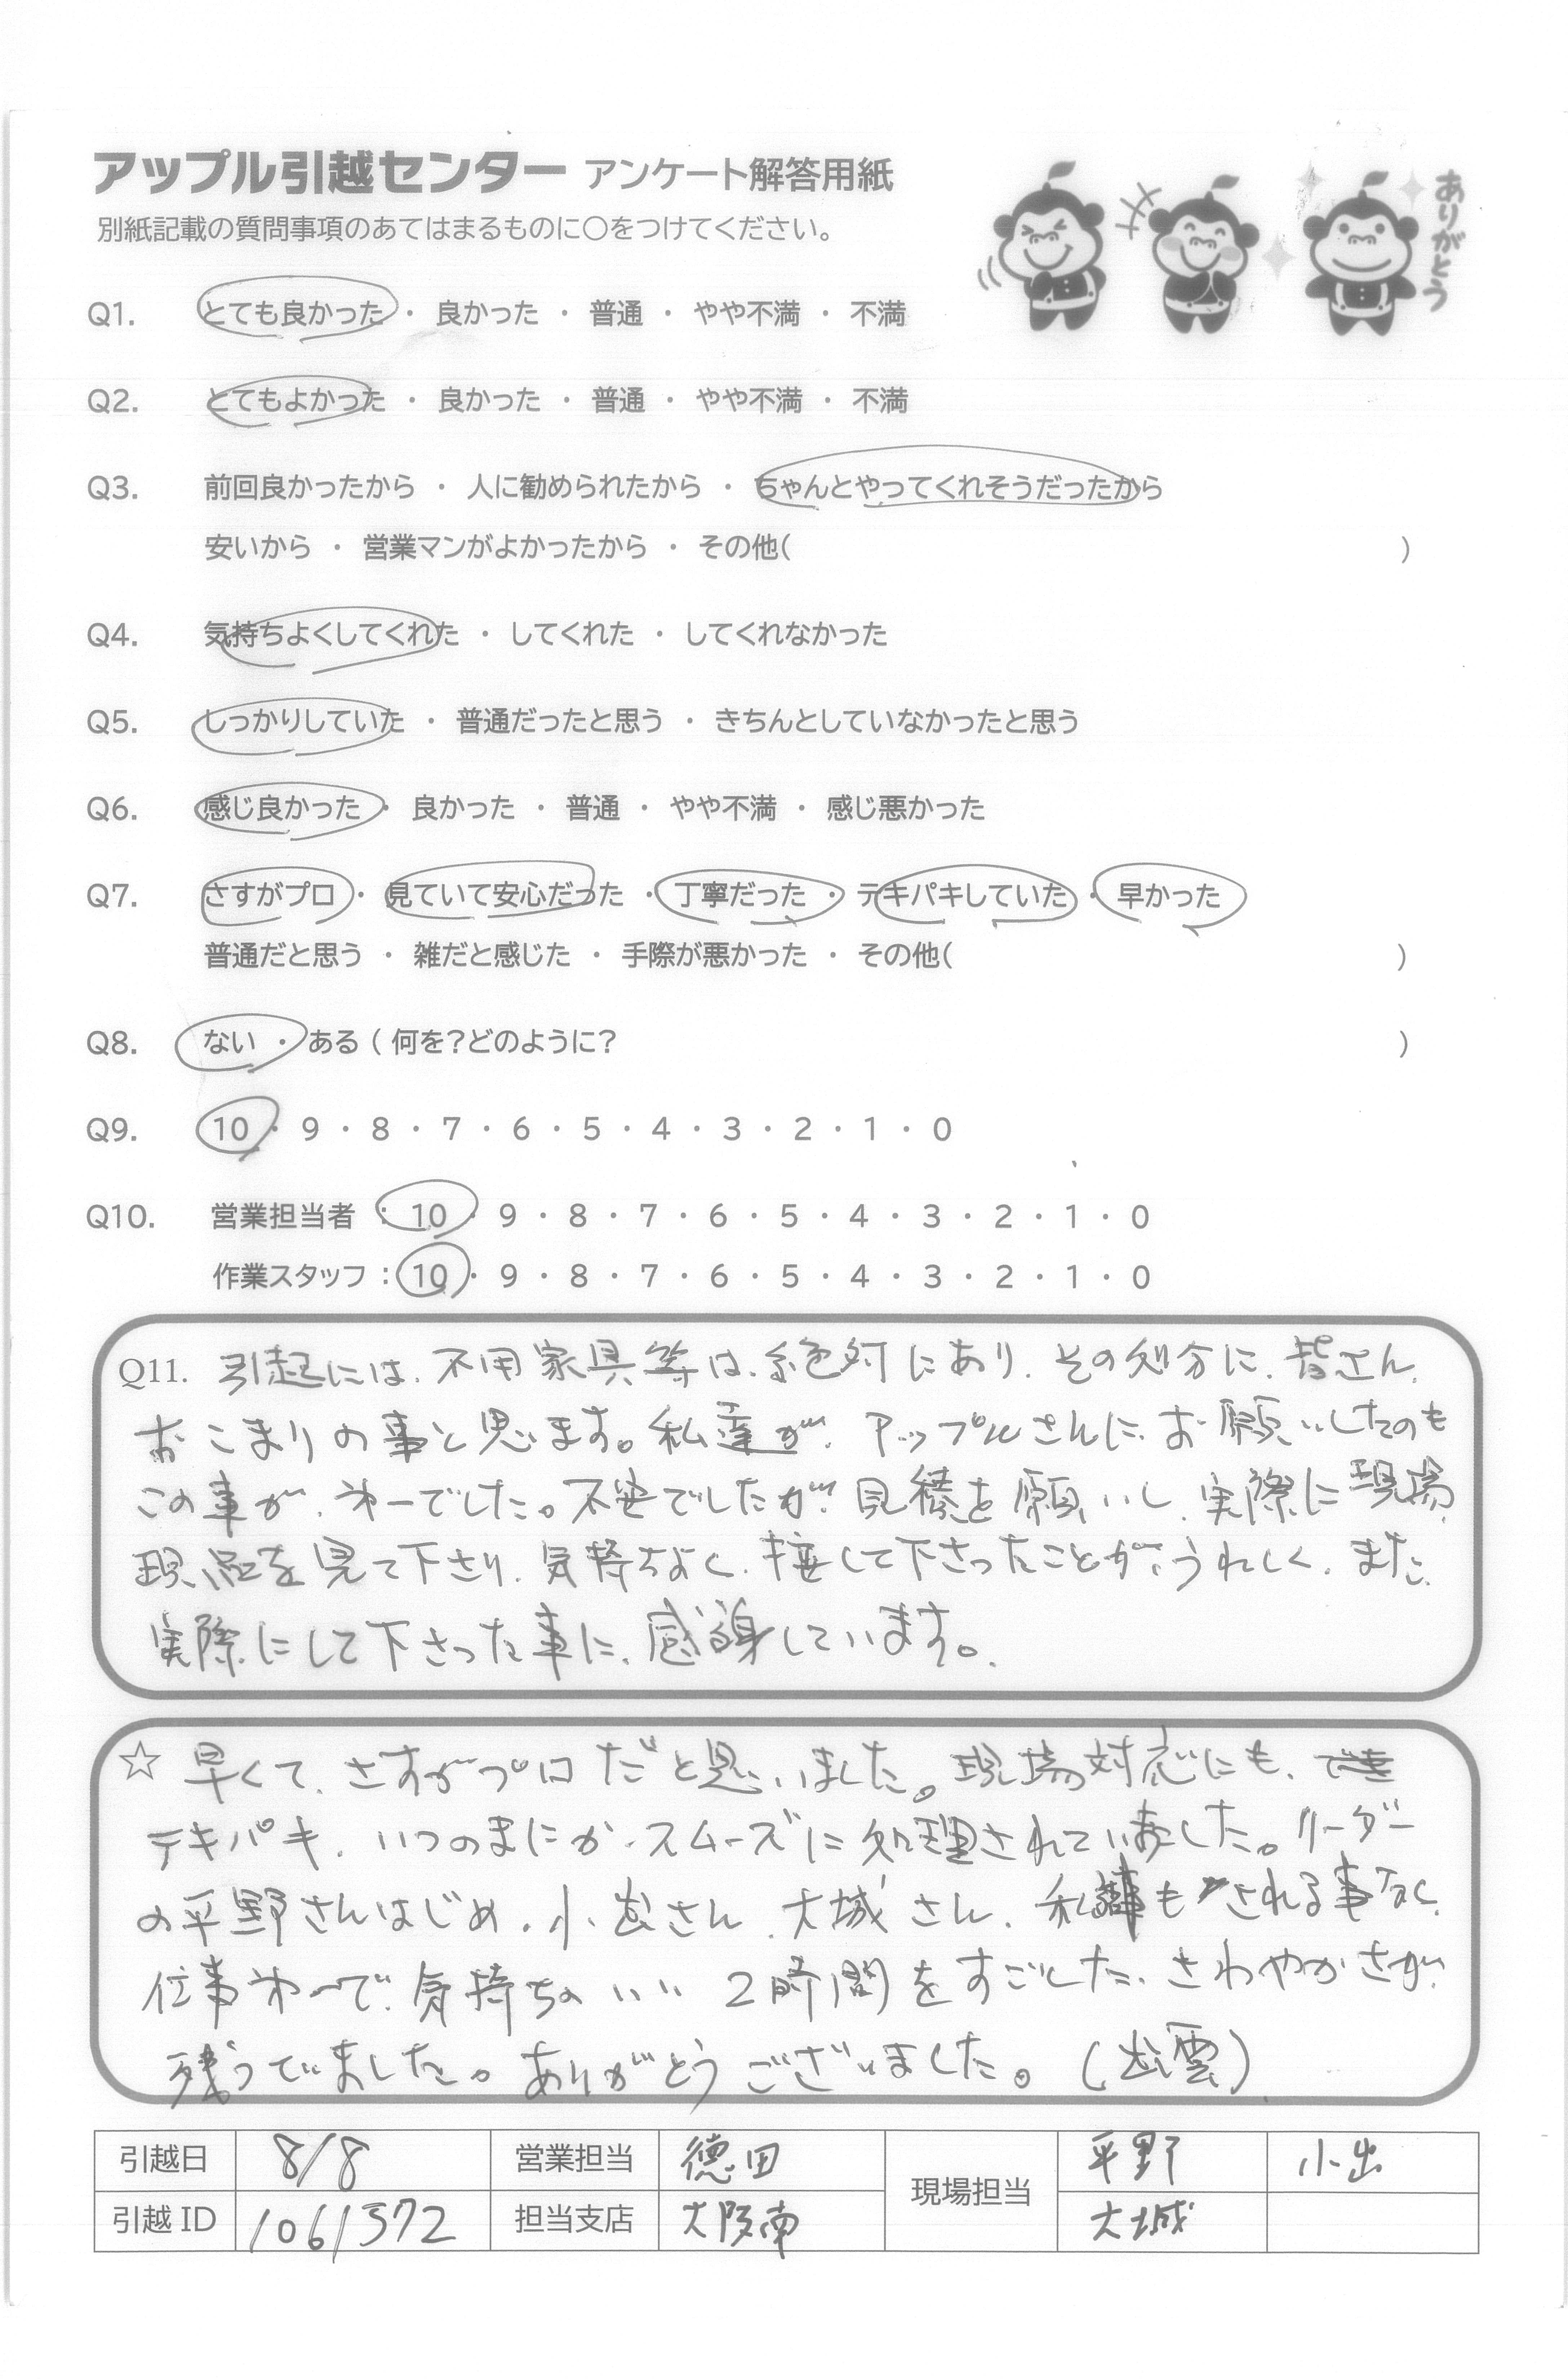 アップル引越センター アンケート解答用紙
ありがとう
別紙記載の質問事項のあてはまるものに〇をつけてください。
Q1. とても良かった ・ 良かった ・ 普通 ・ やや不満 ・ 不満
Q2. とてもよかった ・ 良かった ・ 普通 ・ やや不満 ・ 不満
Q3. 前回良かったから ・ 人に勧められたから ・ ちゃんとやってくれそうだったから
安いから ・ 営業マンがよかったから ・ その他( )
Q4. 気持ちよくしてくれた ・ してくれた ・ してくれなかった
Q5. しっかりしていた ・ 普通だったと思う ・ きちんとしていなかったと思う
Q6. 感じ良かった ・ 良かった ・ 普通 ・ やや不満 ・ 感じ悪かった
Q7. さすがプロ ・ 見ていて安心だった ・ 丁寧だった ・ テキパキしていた ・ 早かった
普通だと思う ・ 雑だと感じた ・ 手際が悪かった ・ その他( )
Q8. ない ・ ある ( 何を?どのように? )
Q9. 10 ・ 9 ・ 8 ・ 7 ・ 6 ・ 5 ・ 4 ・ 3 ・ 2 ・ 1 ・ 0
Q10. 営業担当者 : 10 ・ 9 ・ 8 ・ 7 ・ 6 ・ 5 ・ 4 ・ 3 ・ 2 ・ 1 ・ 0
作業スタッフ : 10 ・ 9 ・ 8 ・ 7 ・ 6 ・ 5 ・ 4 ・ 3 ・ 2 ・ 1 ・ 0
Q11. 引起には、不用家具等は、絶対にあり、その処分に、皆さん、
おこまりの事と思います。私達が、アップルさんに、お願いしたのも
この事が、㐧一でした。不安でしたが、見積を願いし、実際に現場、
現品を見て下さり、気持ちよく、接して下さったことが、うれしく、また、
実際にして下さった事に、感謝しています。
☆ 早くて、さすがプロだと思いました。現場対応にも、
テキパキ、いつのまにか、スムーズに処理されていました。リーダー
の平野さんはじめ、小出さん、大城さん、私事もされる事なく、
仕事㐧一で、気持ちのいい2時間をすごした、さわやかさが、
残ってました。ありがとうございました。(出雲)
引越日 8/8 営業担当 徳田 現場担当 平野 小出
引越ID 1061572 担当支店 大阪南 大城